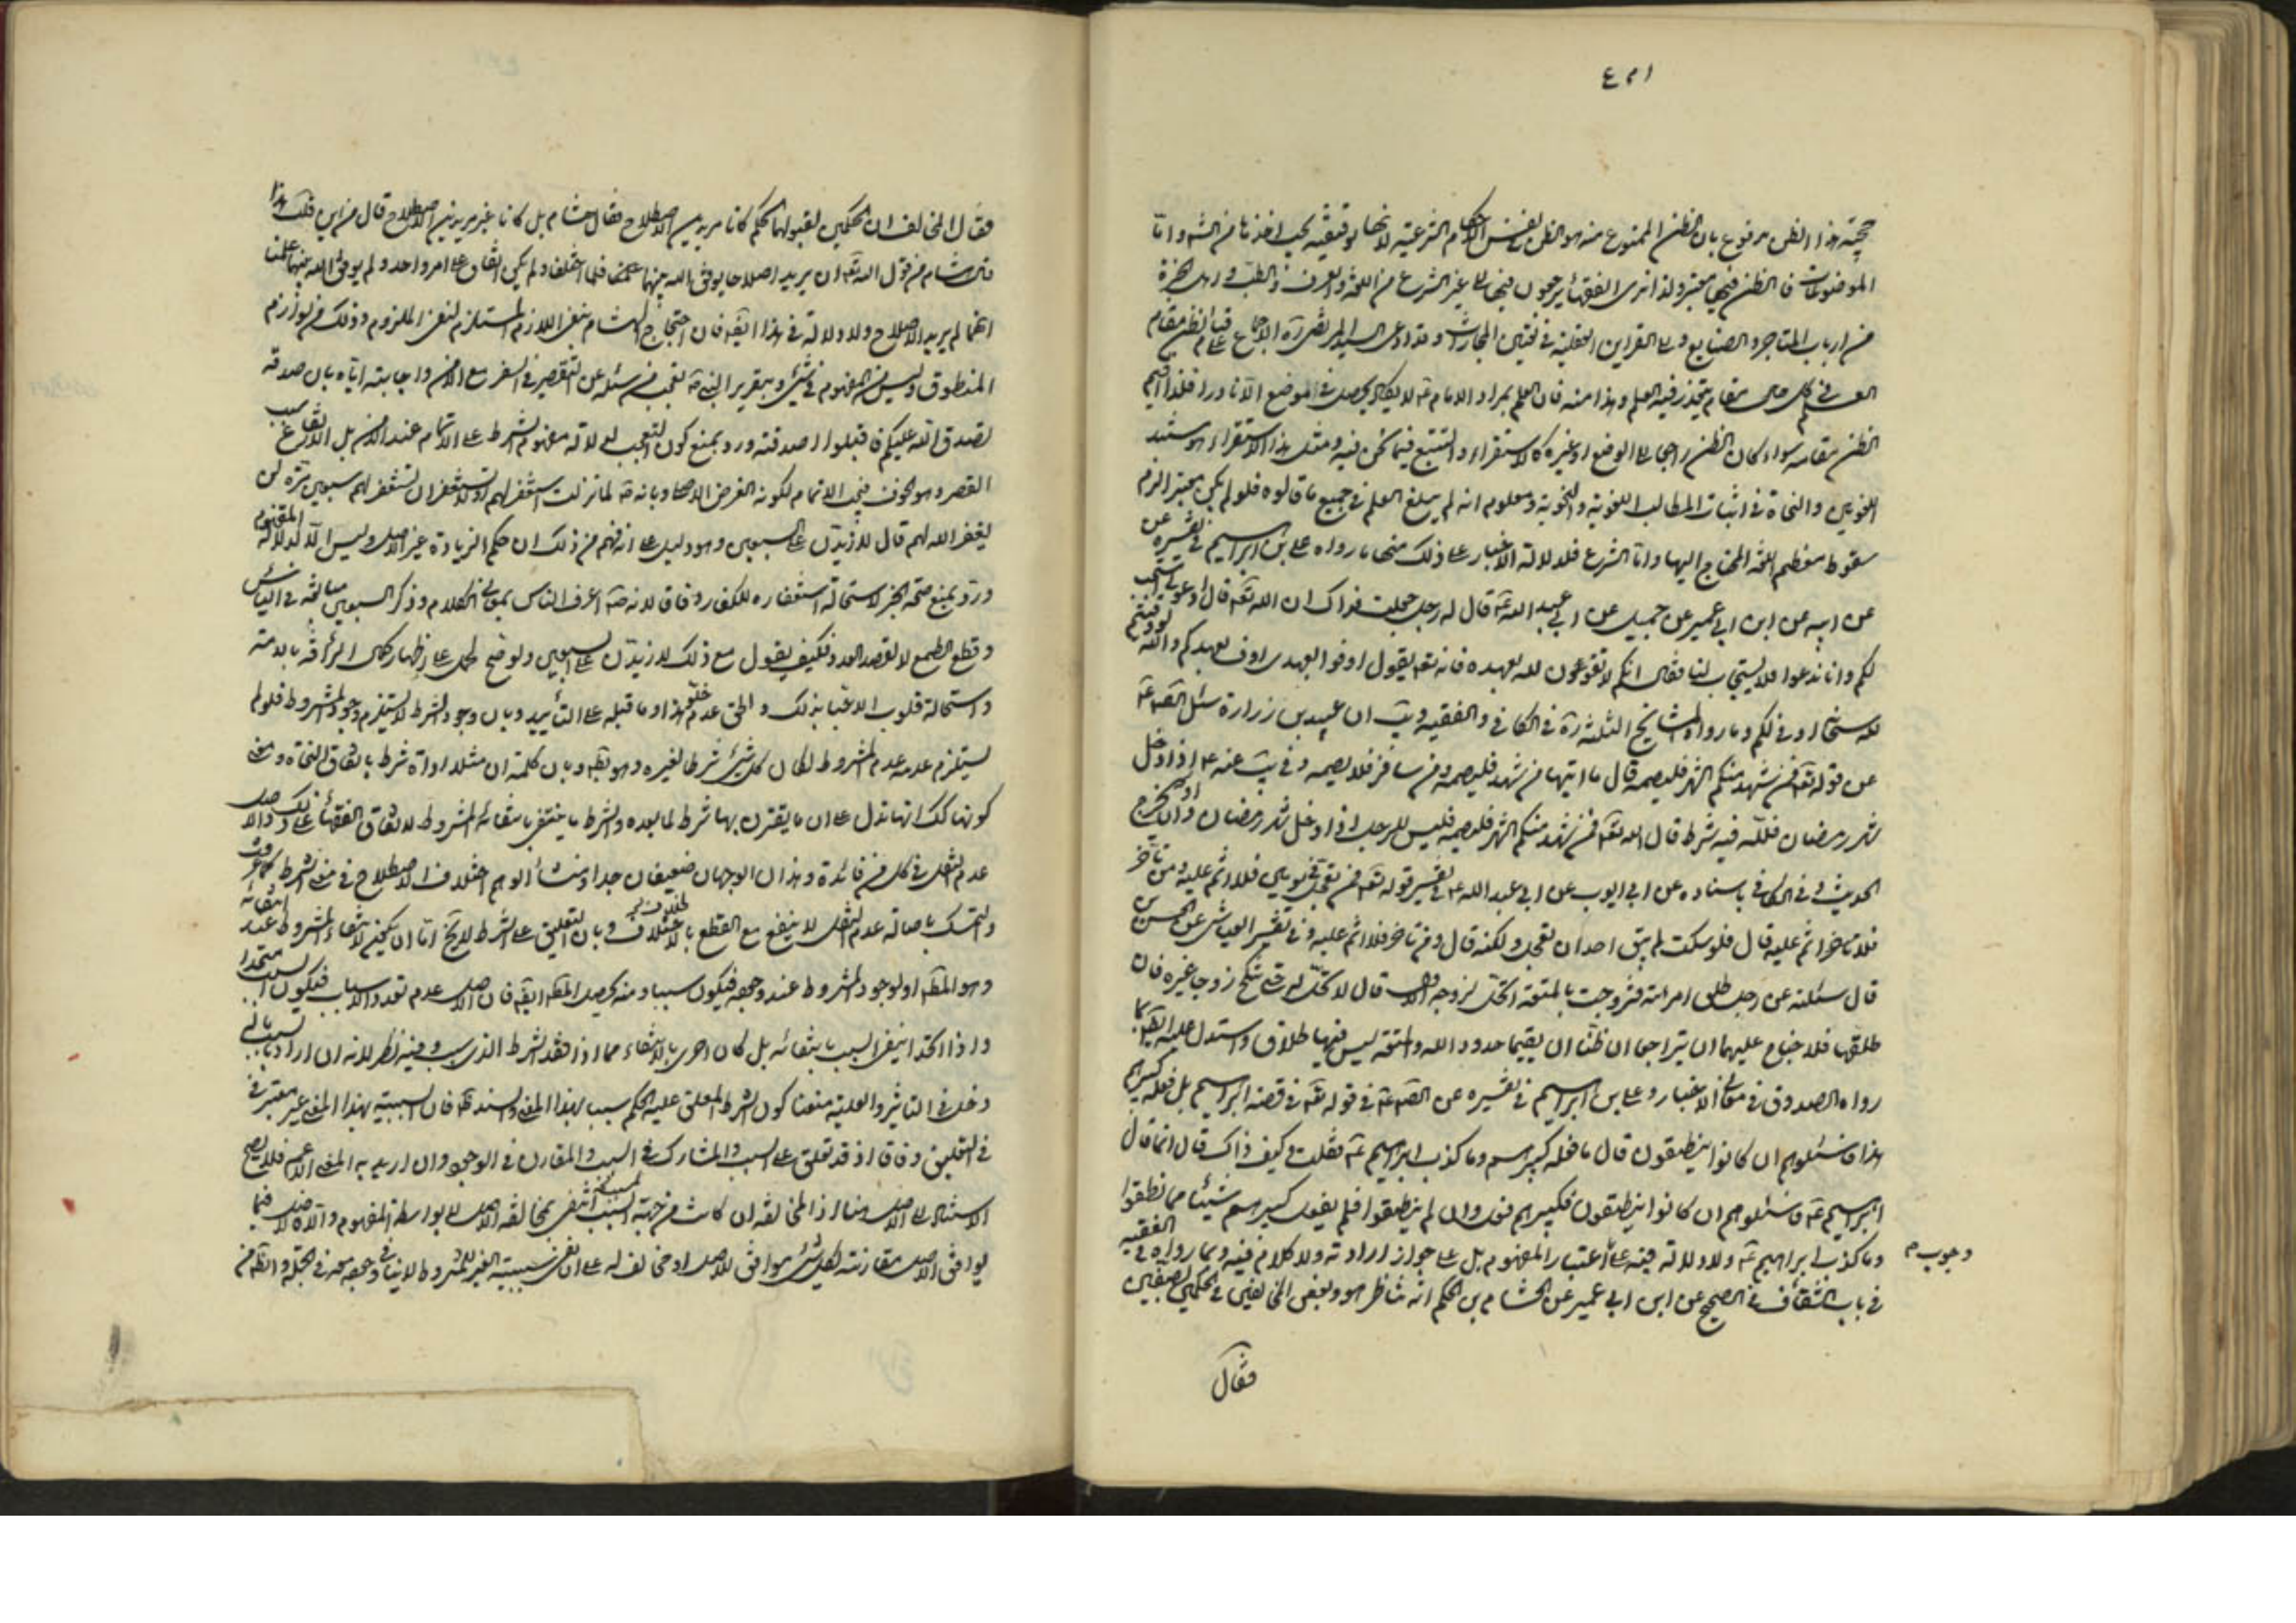 حجيّة هذا الظن مدفوع بان الظن الممنوع منه هو الظن بنفس الاحكام الشرعيّة لانها توقيفيّه يجب اخذها من الشرع واما
الموضوعات فالظن فيها معتبر ولذا نرى الفقهاء يرجعون فيها الى غير الشرع من اللغة والعرف والطب و اهل الخبرة
من ارباب المتاجر والصنايع والى القراين العقلية في تعيين المجازات وقد ادعى السيد المرتضى ره الاجماع على قيام الظن مقام
العلم في كل مقام يتعذر فيه العلم وهذا منه فان العلم بمراد الامام ع لا يكاد يحصل في الموضع الا نادرا فلذا اقيم
الظن مقامه سواء كان الظن راجعا الى الوضع او غيره كالاستقراء والتتبع فيما نحن فيه ومثل هذا الاستقراء هو مستند
اللغويين والنحاة في اثبات المطالب اللغوية والنحوية ومعلوم انه لم يبلغ العلم في جميع ما قالوه فلو لم يكن معتبرا لزم
سقوط معظم اللغة المحتاج اليها واما الشرع فلدلالة الاخبار على ذلك منها ما رواه علي بن ابراهيم في تفسيره عن
عن ابيه عن ابن ابي عمير عن جميل عن ابي عبد الله ع قال له رجل جعلت فداك ان الله تعه قال ادعوني استجب
لكم وانا ندعوا فلا يستجاب لنا فقال انكم لا توفون لله بعهده فانه تعه يقول اوفوا بعهدي اوف بعهدكم والله لو وفيتم
لله سبحانه لوفى لكم وما رواه المشايخ الثلثة ره في الكافي والفقيه ويب ان عبيد بن زرارة سئل الصه ع
عن قوله تعه فمن شهد منكم الشهر فليصمه قال ما ابينها من شهد فليصمه ومن سافر فلا يصمه وفي يب عنه ع اذا دخل
شهر رمضان فلله فيه شرط قال الله تعه فمن شهد منكم الشهر فليصمه فليس للرجل اذا دخل شهر رمضان ان يخرج
الحديث وفي الكافي باسناده عن ابي ايوب عن ابي عبد الله ع في تفسير قوله تعه فمن تعجل في يومين فلا اثم عليه ومن تاخر
فلا اثم عليه قال فلو سكت لم يبق احد ان تعجل ولكنه قال ومن تاخر فلا اثم عليه وفي تفسير العياشي عن الحسن بن
قال سئلته عن رجل طلق امراته فتزوجت بالمتعة اتحل لزوجها الاول قال لا تحل له حتى تنكح زوجا غيره فان
طلقها فلا جناح عليهما ان يتراجعا ان ظنا ان يقيما حدود الله والمتعة ليس فيها طلاق واستدل عليه ايضا بما
رواه الصدوق في معاني الاخبار وعلي بن ابراهيم في تفسيره عن الصه ع في قوله تعه في قصة ابراهيم بل فعله كبيرهم
هذا فاسئلوهم ان كانوا ينطقون قال ما فعله كبيرهم وما كذب ابراهيم ع فقلت وكيف ذاك قال انما قال
ابراهيم ع فاسئلوهم ان كانوا ينطقون فكبيرهم فعل وان لم ينطقوا فلم يفعل كبيرهم شيئا فما نطقوا
وما كذب ابراهيم ع ولا دلالة فيه على اعتبار المفهوم بل على جواز ارادته ولا كلام فيه وبما رواه في الفقيه
وجوب م
في باب الشقاق في الصحيح عن ابن ابي عمير عن هشام بن الحكم انه تناظر هو وبعض المخالفين في الحكمين بصفين
فقال
فقال المخالف ان الحكمين لقبولهما الحكم كانا مريدين الاصلاح فقال هشام بل كانا غير مريدين الاصلاح قال من اين قلت هذا
قال هشام من قول الله تعه ان يريدا اصلاحا يوفق الله بينهما فلما اختلفا ولم يكن اتفاق على امر واحد ولم يوفق الله بينهما علمنا
انهما لم يريدا الاصلاح ولا دلالة في هذا ايضا فان احتجاج هشام بنفي اللازم المستلزم لنفي الملزوم وذلك من لوازم
المنطوق وليس من المفهوم في شيء وبتقرير النبي ص تعجب من سئله عن التقصير في السفر مع الامن واجابته اياه بان صدقة
تصدق الله عليكم فاقبلوا صدقته ورد بمنع كون التعجب لدلالة مفهوم الشرط على الاتمام عند الامن بل لانتفاء سبب
القصر وهو الخوف فيجب الاتمام لكونه الفرض الاصلي وبانه ص لما نزلت استغفر لهم او لا تستغفر ان تستغفر لهم سبعين مرة لن
يغفر الله لهم قال لازيدن على السبعين وهو دليل على انه فهم من ذلك ان حكم الزيادة غير الاصل وليس الا لدلالة المفهوم
ورد بمنع صحة الخبر لاستحالة استغفاره للكفار وفاقا لانه ص اعرف الناس بمعاني الكلام وذكر السبعين مبالغة في الياس
وقطع الطمع لا لقصد العدد فكيف يقول مع ذلك لازيدن على السبعين ولو صح حمل على اظهار كمال الرافة بالامة
واستمالة قلوب الاحياء بذلك والحق عدم خلو هذا وما قبله على التاييد وبان وجود الشرط لا يستلزم وجود المشروط فلو لم
يستلزم عدمه عدم المشروط لكان كل شيء شرطا لغيره وهو بط وبان كلمة ان مثلا اداة شرط باتفاق النحاة ومعنى
كونها كك انها تدل على ان ما يقترن بها شرط لما بعده والشرط ما ينتفي بانتفائه المشروط لاتفاق الفقهاء على ذلك والاصل
عدم النقل في كل فن فائدة وهذان الوجهان ضعيفان جدا ومنشأ الوهم اختلاف الاصطلاح في معنى الشرط كما عرفت
والتمسك باصالة عدم النقل لا ينفع مع القطع بالاختلاف وبان التعليق على الشرط لا يخ اما ان يكون لانتفاء المشروط عند انتفائه
وهو المط او لوجود المشروط عند وجوده فيكون سببا ومنه يحصل المط ايضا فان الاصل عدم تعدد الاسباب فيكون السبب متحدا
واذا اتحد انتفى المسبب بانتفائه بل كان احرى بالانتفاء مما اذا فقد الشرط الذي وفيه نظر لانه ان اراد بالسبب ما له
دخل في التاثير والعلية منعنا كون الشرط المعلق عليه الحكم سببا بهذا المعنى والسند ظ فان السببية بهذا المعنى غير معتبر في
في التعليق وفاقا اذ قد تعلق على السبب والمشارك في السبب والمقارن في الوجود وان اريد به المعنى الاعم فلا يصح
الاستناد الى الاصل هنا اذ المخالفة ان كانت من جهة السبب انتفى بمخالفة الاصل لا بواسطة المفهوم والا فالاصل فيما
يوافق الاصل مقارنته لكل شيء موافق للاصل او مخالف له على ان نفي سببية الغير للمشروط لا ينافي وجوده معه في الجملة والظ من